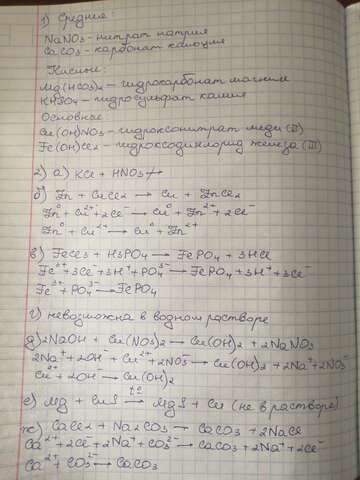 1) Средние:
NaNO3 - нитрат натрия
CaCO3 - карбонат кальция
Кислые:
Mg(HCO3)2 - гидрокарбонат магния
KHSO4 - гидросульфат калия
Основные
Cu(OH)NO3 - гидроксонитрат меди (II)
Fe(OH)Cl2 - гидроксодихлорид железа (III)
2) а) KCl + HNO3 ↛
б) Zn + CuCl2 → Cu + ZnCl2
Zn⁰ + Cu²⁺ + 2Cl⁻ → Cu⁰ + Zn²⁺ + 2Cl⁻
Zn⁰ + Cu²⁺ → Cu⁰ + Zn²⁺
в) FeCl3 + H3PO4 → FePO4 + 3HCl
Fe³⁺ + 3Cl⁻ + 3H⁺ + PO4³⁻ → FePO4 + 3H⁺ + 3Cl⁻
Fe³⁺ + PO4³⁻ → FePO4
г) невозможна в водном растворе
д) 2NaOH + Cu(NO3)2 → Cu(OH)2 + 2NaNO3
2Na⁺ + 2OH⁻ + Cu²⁺ + 2NO3⁻ → Cu(OH)2 + 2Na⁺ + 2NO3⁻
Cu²⁺ + 2OH⁻ → Cu(OH)2
е) Mg + CuS →t°C MgS + Cu (не в растворе)
ж) CaCl2 + Na2CO3 → CaCO3 + 2NaCl
Ca²⁺ + 2Cl⁻ + 2Na⁺ + CO3²⁻ → CaCO3 + 2Na⁺ + 2Cl⁻
Ca²⁺ + CO3²⁻ → CaCO3